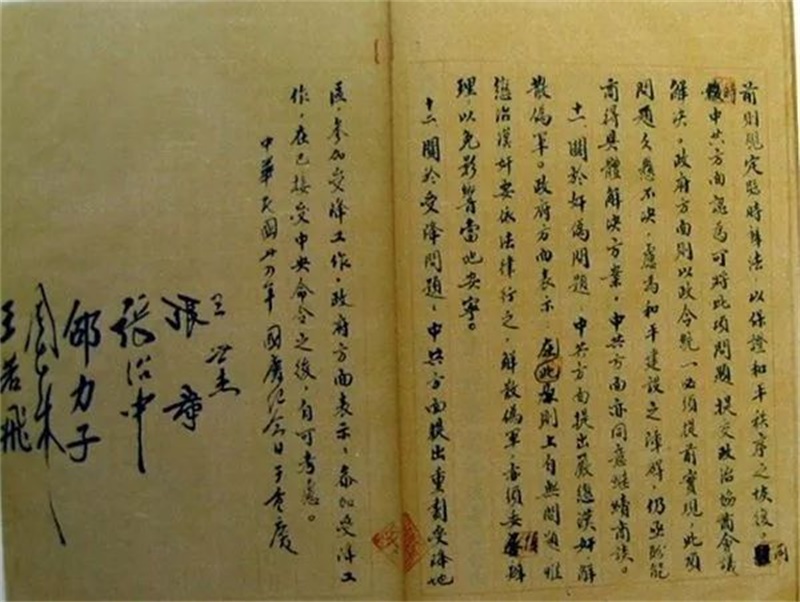 前則規定臨時辦法,以保證和平秩序之恢復,同
時中共方面認為可將此項問題提交政治協商會議
解決。政府方面則以政令統一必須提前實現,此項
問題久懸不決,慮為和平建設之障礙,仍亟盼能
商得具體解決方案。中共方面亦同意繼續商談。
十一、關於奸偽問題,中共方面提出嚴懲漢奸,解
散偽軍。政府方面表示:在此原則上自無問題,惟
懲治漢奸要依法律行之,解散偽軍,亦須妥慎辦
理,以免影響當地安寧。
十二、關於受降問題,中共方面提出重劃受降地
區,參加受降工作。政府方面表示:參加受降工
作,在已接受中央命令之後,自可考慮。
中華民國卅四年國慶紀念日于重慶
王世杰
張群
張治中
邵力子
周恩來
王若飛